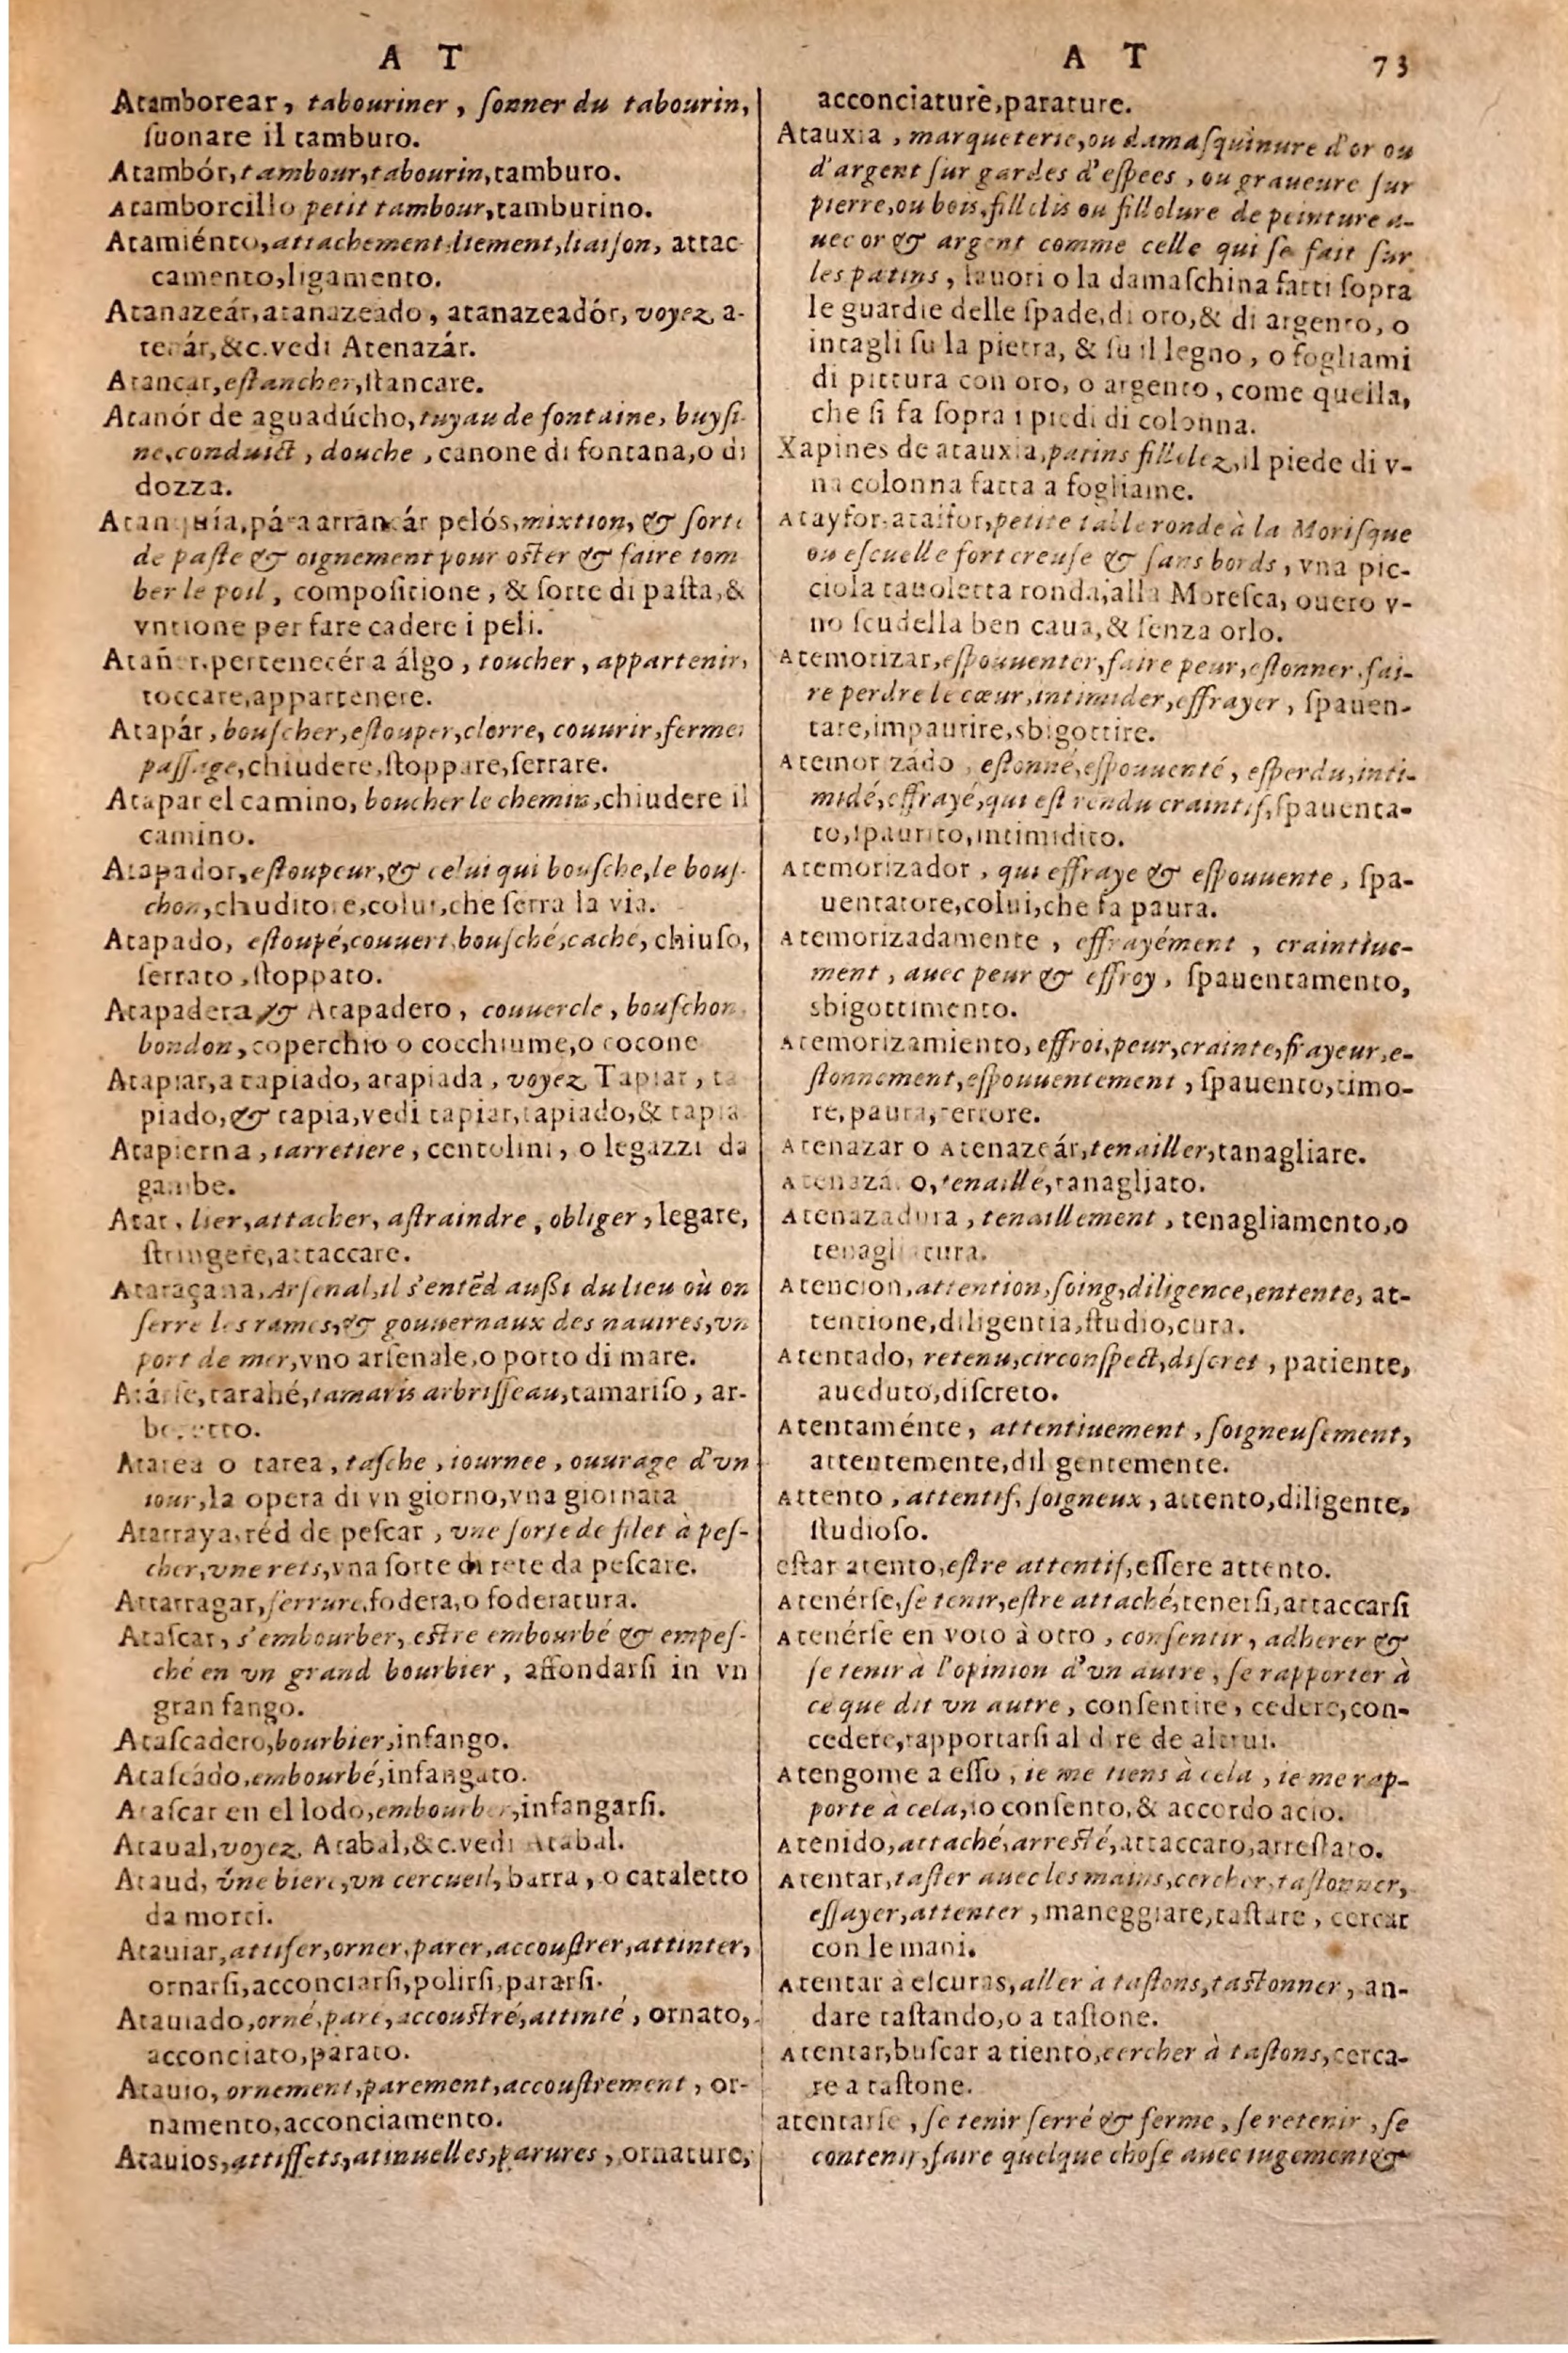 A T
Atamborear, tabouriner, ſonner du tabourin,
ſuonare il tamburo.
Atambór, tambour, tabourin, tamburo.
Atamborcillo petit tambour, tamburino.
Atamiénto, attachement, liement, liaiſon, attac-
camento, ligamento.
Atanazeár, atanazeado, atanazeadór, voyez a-
tenár, &c. vedi Atenazár.
Atancar, eſtancher, ſtancare.
Atanór de aguadúcho, tuyau de fontaine, buyſi-
ne, conduict, douche, canone di fontana, o di
dozza.
Atanquía, pára arrancár pelós, mixtion, & ſorte
de paſte & oignement pour oſter & faire tom
ber le poil, compoſitione, & ſorte di paſta, &
vntione per fare cadere i peli.
Atañer, pertenecér a álgo, toucher, appartenir,
toccare, appartenere.
Atapár, bouſcher, eſtouper, clorre, couurir, fermer
paſſage, chiudere, ſtoppare, ſerrare.
Atapar el camino, boucher le chemin, chiudere il
camino.
Atapador, eſtoupeur, & celui qui bouſche, le bouſ-
chon, chiuditore, colui, che ſerra la via.
Atapado, eſtoupé, couuert, bouſché, caché, chiuſo,
ſerrato, ſtoppato.
Atapadera & Atapadero, couuercle, bouſchon,
bondon, coperchio o cocchiume, o cocone
Atapiar, atapiado, atapiada, voyez Tapiar, ta
piado, & tapia, vedi tapiar, tapiado, & tapia
Atapierna, iarretiere, centolini, o legazzi da
gambe.
Atar, lier, attacher, aſtraindre, obliger, legare,
ſtringere, attaccare.
Ataraçana, Arſenal, il s'entẽd auſſi du lieu où on
ſerre les rames, & gouuernaux des nauires, vn
port de mer, vno arſenale, o porto di mare.
Atárfe, tarahé, tamaris arbriſſeau, tamariſo, ar-
boretto.
Atarea o tarea, taſche, iournee, ouurage d'vn
iour, la opera di vn giorno, vna giornata
Atarraya, réd de peſcar, vne ſorte de filet à peſ-
cher, vne rets, vna ſorte di rete da peſcare.
Attarragar, ferrure, fodera, o foderatura.
Ataſcar, s'embourber, eſtre embourbé & empeſ-
ché en vn grand bourbier, affondarſi in vn
gran fango.
Ataſcadero, bourbier, infango.
Ataſcádo, embourbé, infangato.
Ataſcar en el lodo, embourber, infangarſi.
Ataual, voyez Atabal, &c. vedi Atabal.
Ataud, vne biere, vn cercueil, barra, o cataletto
da morti.
Atauiar, attifer, orner, parer, accouſtrer, attinter,
ornarſi, acconciarſi, polirſi, pararſi.
Atauiado, orné, paré, accouſtré, attinté, ornato,
acconciato, parato.
Atauio, ornement, parement, accouſtrement, or-
namento, acconciamento.
Atauios, attiffets, atinuelles, parures, ornature,
A T 73
acconciature, parature.
Atauxia, marqueterie, ou damaſquinure d'or ou
d'argent ſur gardes d'eſpees, ou graueure ſur
pierre, ou bois, fillelis ou fillolure de peinture a-
uec or & argent comme celle qui ſe fait ſur
les patins, lauori o la damaſchina fatti ſopra
le guardie delle ſpade, di oro, & di argento, o
intagli ſu la pietra, & ſu il legno, o fogliami
di pittura con oro, o argento, come quella,
che ſi fa ſopra i piedi di colonna.
Xapines de atauxia, patins fillelez, il piede di v-
na colonna fatta a fogliame.
Atayfor, ataifor, petite table ronde à la Moriſque
ou eſcuelle fort creuſe & ſans bords, vna pic-
ciola tauoletta ronda, alla Moreſca, ouero v-
no ſcudella ben caua, & ſenza orlo.
Atemorizar, eſpouuenter, faire peur, eſtonner, fai-
re perdre le cœur, intimider, effrayer, ſpauen-
tare, impaurire, sbigottire.
Atemorizádo, eſtonné, eſpouuenté, eſperdu, inti-
midé, effrayé, qui eſt rendu craintif, ſpauenta-
to, ipaurito, intimidito.
Atemorizador, qui effraye & eſpouuente, ſpa-
uentatore, colui, che fa paura.
Atemorizadamente, effrayément, craintiue-
ment, auec peur & effroy, ſpauentamento,
sbigottimento.
Atemorizamiento, effroi, peur, crainte, frayeur, e-
ſtonnement, eſpouuentement, ſpauento, timo-
re, paura, terrore.
Atenazar o Atenazeár, tenailler, tanagliare.
Atenazá o, tenaillé, tanagliato.
Atenazadura, tenaillement, tenagliamento, o
tenagliatura.
Atencion, attention, ſoing, diligence, entente, at-
tentione, diligentia, ſtudio, cura.
Atentado, retenu, circonſpect, diſcret, patiente,
aueduto, diſcreto.
Atentaménte, attentiuement, ſoigneuſement,
attentemente, diligentemente.
Attento, attentif, ſoigneux, attento, diligente,
ſtudioſo.
eſtar atento, eſtre attentif, eſſere attento.
Atenérſe, ſe tenir, eſtre attaché, tenerſi, attaccarſi
Atenérſe en voto à otro, conſentir, adherer &
ſe tenir à l'opinion d'vn autre, ſe rapporter à
ce que dit vn autre, conſentire, cedere, con-
cedere, rapportarſi al dire de altrui.
Atengome a eſſo, ie me tiens à cela, ie me rap-
porte à cela, io conſento, & accordo acio.
Atenido, attaché, arreſté, attaccato, arreſtato.
Atentar, taſter auec les mains, cercher, taſtonner,
eſſayer, attenter, maneggiare, taſtare, cercar
con le mani.
Atentar à eſcuras, aller à taſtons, taſtonner, an-
dare taſtando, o a taſtone.
Atentar, buſcar a tiento, cercher à taſtons, cerca-
re a taſtone.
atentarſe, ſe tenir ſerré & ferme, ſe retenir, ſe
contenir, faire quelque choſe auec iugement &